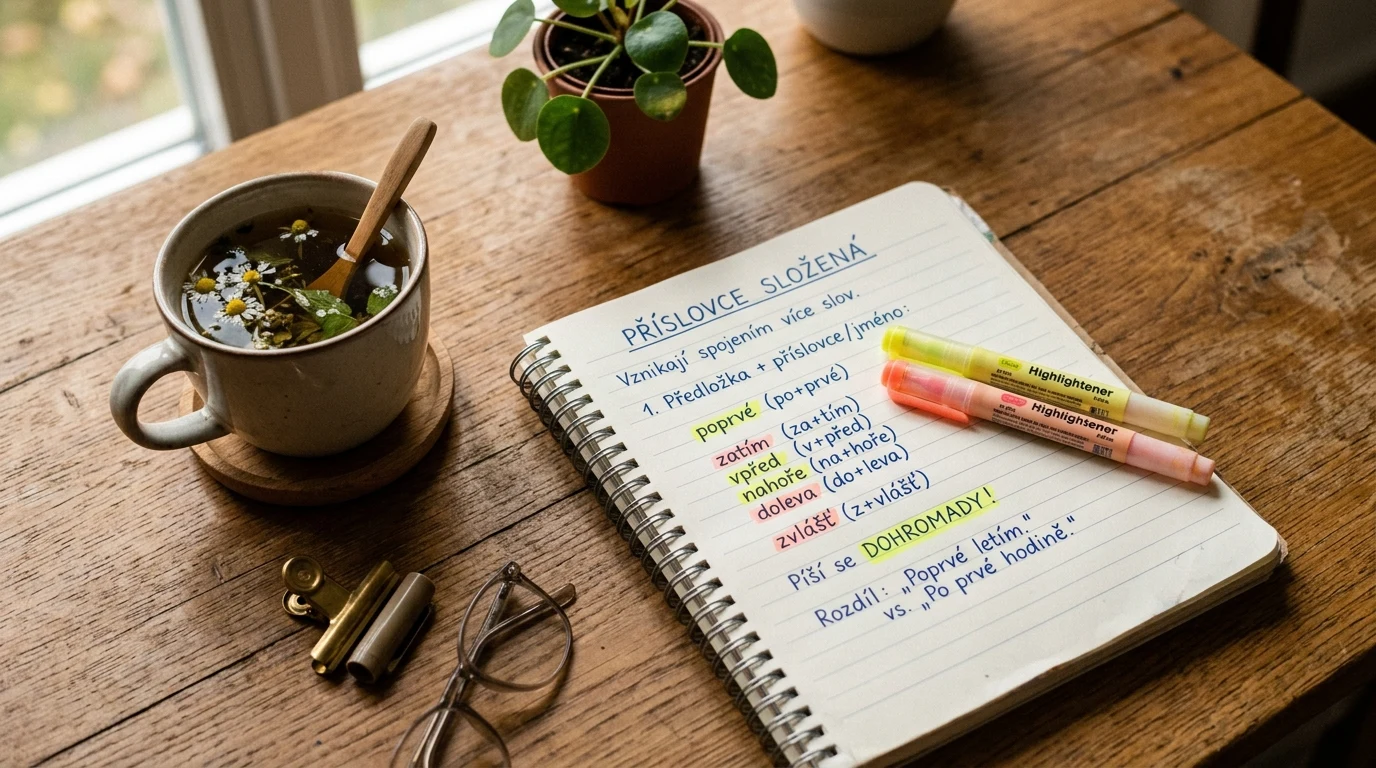 PŘÍSLOVCE SLOŽENÁ
Vznikají spojením více slov.
1. Předložka + příslovce/jméno:
poprvé (po+prvé)
zatím (za+tím)
vpřed (v+před)
nahoře (na+hoře)
doleva (do+leva)
zvlášť (z+vlášť)
Píší se DOHROMADY!
Rozdíl: „Poprvé letím.“
vs. „Po prvé hodině“.
Highlightener
Highlighsener